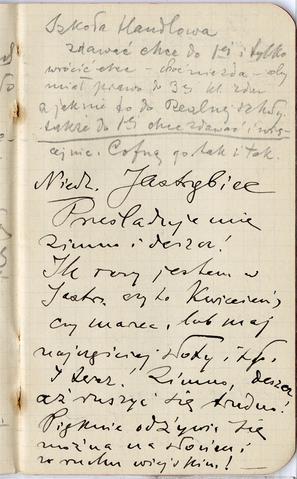 Szkoła Handlowa
zdawać chce do 1ej i tylko
wrócić chce – choć nierada – aby
miał prawo do 3ej kl.
a jeśli nie to do Realnej szkoły
także do 1ej chce zdawać i
Cofną go tak i tak.
Niedz. Jastrzębiec
Prześladuje mię
zimno i deszcz!
Ile razy jestem w
Jastrz. czy to Kwiecień,
czy marzec, lub maj
najczęściej słoty i
I teraz! Zimno, deszcz
aż ruszyć się trudno!
Pięknie odżywia się
można na słońcu i
w ruchu wiejskim! –